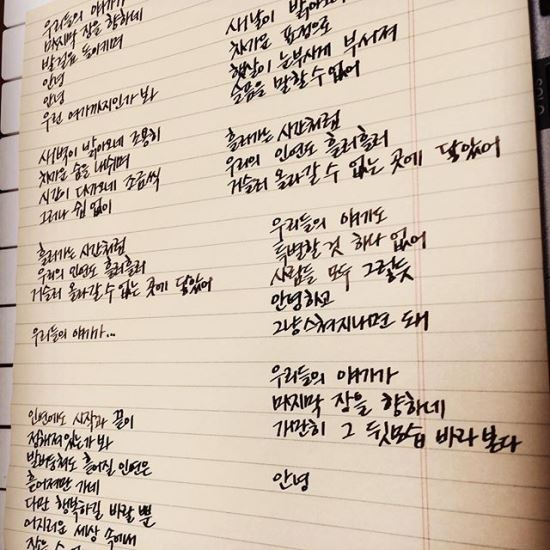 우리들의 얘기가
마지막 장을 향하네
발걸음 돌이키며
안녕
안녕
우린 여기까지인가 봐
새벽이 밝아오네 조용히
차가운 숨을 내쉬며
시간이 다가오네 조금씩
그러나 쉼 없이
흘러가는 시간처럼
우리의 인연도 흘러흘러
거슬러 올라갈 수 없는 곳에 닿았어
우리들의 얘기가...
인연에도 시작과 끝이
정해져있는가 봐
발버둥쳐도 흩어질 인연은
흩어져만 가네
다만 행복하길 바랄 뿐
어지러운 세상 속에서
새날이 밝아오
차가운 표정으로
햇살이 눈부시게 부서져
슬픔을 말할 수 없어
흘러가는 시간처럼
우리의 인연도 흘러흘러
거슬러 올라갈 수 없는 곳에 닿았어
우리들의 얘기도
특별할 것 하나 없어
사람들 모두 그렇듯
안녕하고
그냥 스쳐지나면 돼
우리들의 얘기가
마지막 장을 향하네
가만히 그 뒷모습 바라본다
안녕